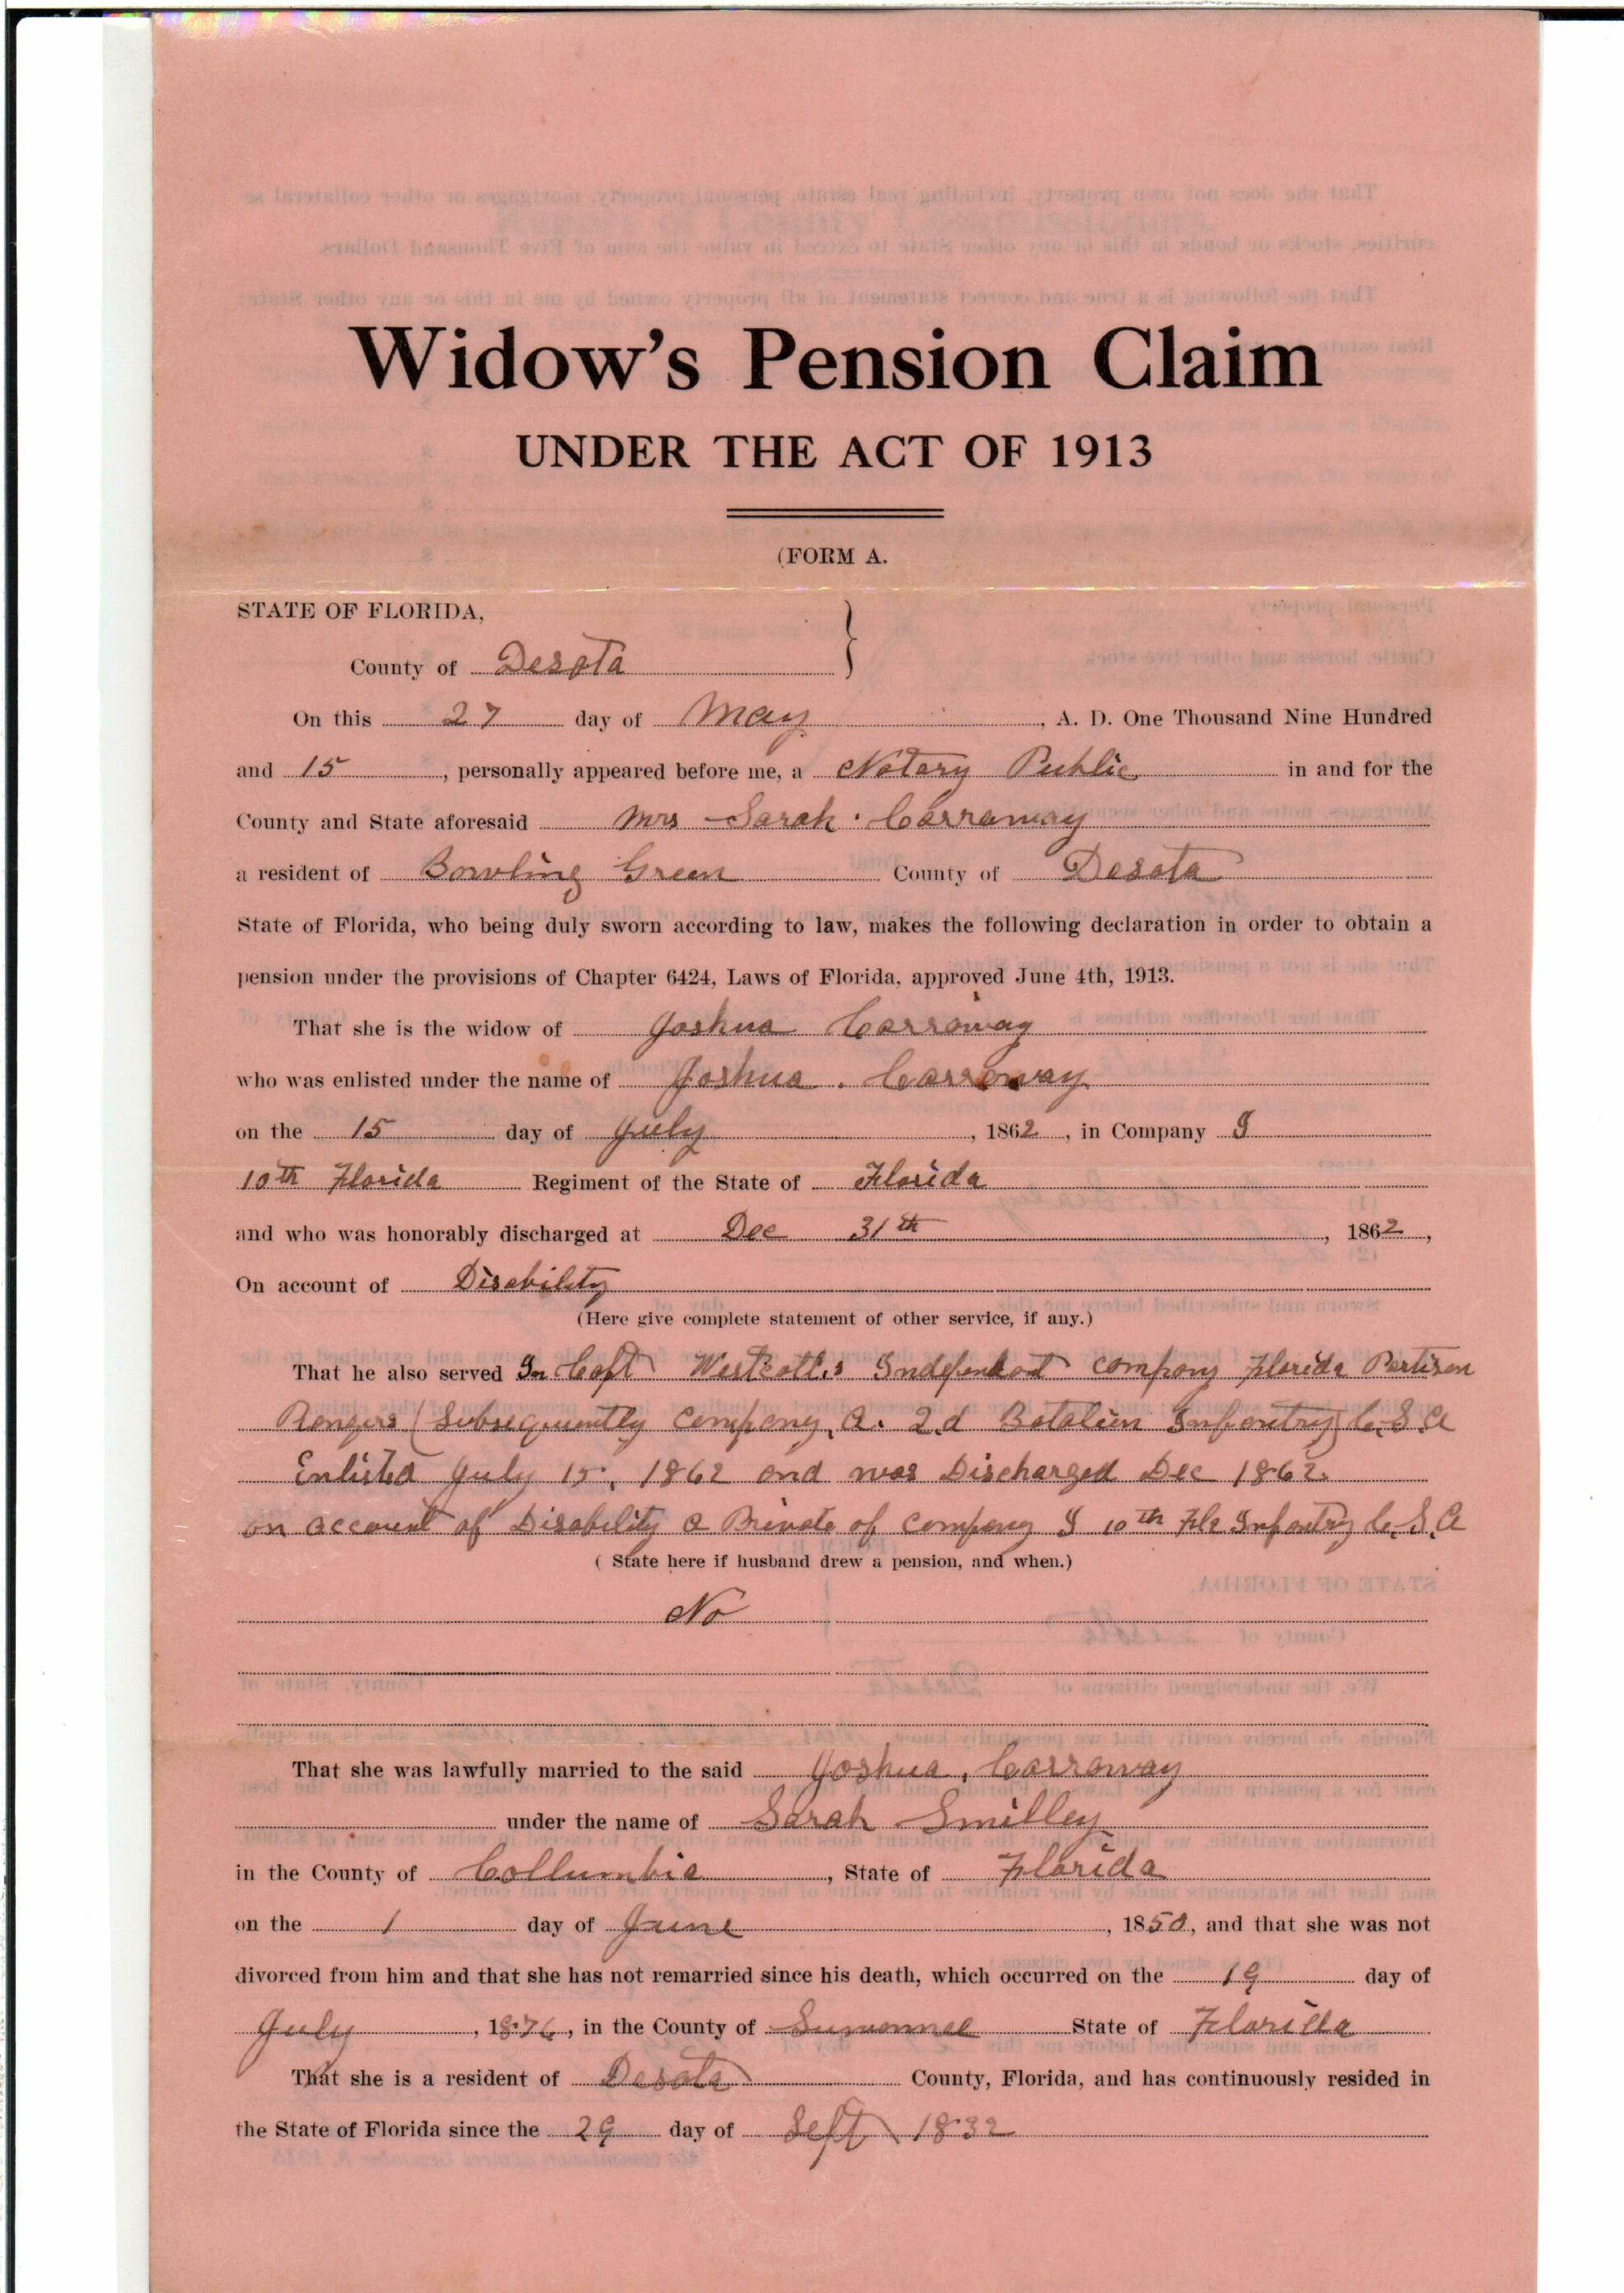 Widow's Pension Claim
UNDER THE ACT OF 1913
(FORM A.
STATE OF FLORIDA,
County of Desota
On this 27 day of May, A. D. One Thousand Nine Hundred
and 15, personally appeared before me, a Notary Public in and for the
County and State aforesaid Mrs Sarah Carraway
a resident of Bowling Green County of Desota
State of Florida, who being duly sworn according to law, makes the following declaration in order to obtain a
pension under the provisions of Chapter 6424, Laws of Florida, approved June 4th, 1913.
That she is the widow of Joshua Carraway
who was enlisted under the name of Joshua Carraway
on the 15 day of July, 1862, in Company I
10th Florida Regiment of the State of Florida
and who was honorably discharged at Dec 31th, 1862,
On account of Disability
(Here give complete statement of other service, if any.)
That he also served In Capt Westcott,s Independant Company Florida Partisan
Rangers (Subsequently Company A. 2d Batalion Infantry) C.S.A
Enlisted July 15, 1862 and was Discharged Dec 1862.
on account of Disability a Private of Company I 10th Fla Infantry C.S.A
( State here if husband drew a pension, and when.)
No
That she was lawfully married to the said Joshua, Carraway
under the name of Sarah Smilley
in the County of Collumbia, State of Florida
on the 1 day of June, 1850, and that she was not
divorced from him and that she has not remarried since his death, which occurred on the 19 day of
July, 1876, in the County of Suwannee State of Florida
That she is a resident of Desota County, Florida, and has continuously resided in
the State of Florida since the 29 day of Sept 1832